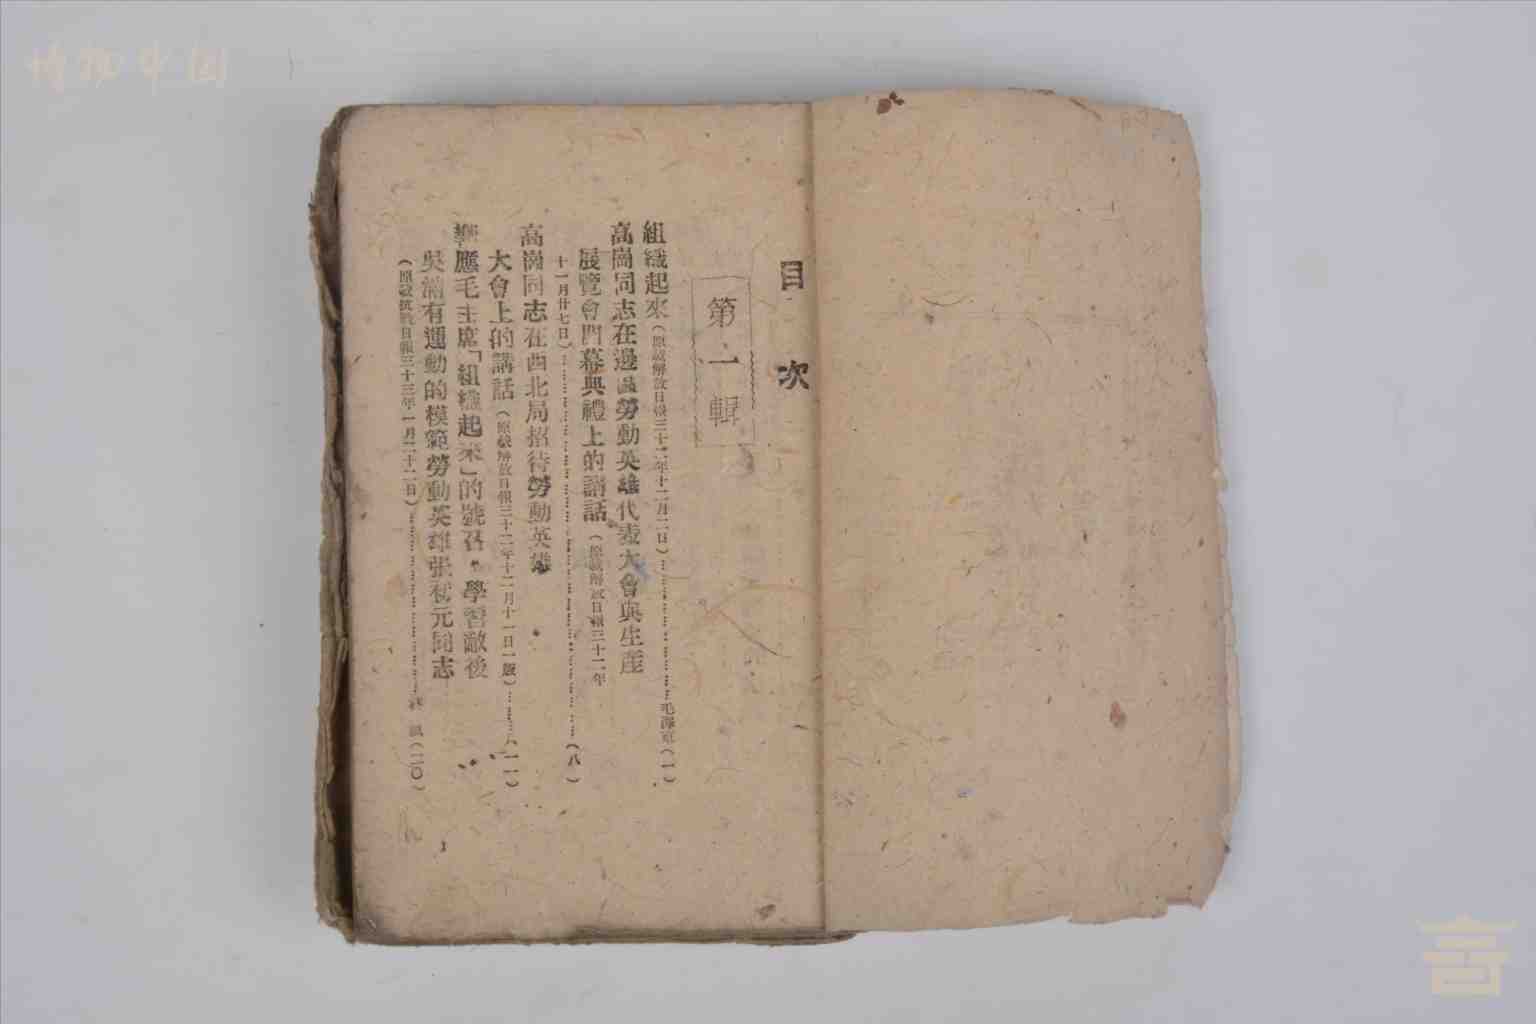 博物中国
目次
第一輯
組織起來(原載解放日報三十二年十二月二日)……毛澤東(一)
高崗同志在邊區勞動英雄代表大會與生產
展覽會開幕典禮上的講話(原載解放日報三十二年
十一月廿七日)……(八)
高崗同志在西北局招待勞動英雄
大會上的講話(原載解放日報三十二年十二月十一日一版)……(一一)
響應毛主席「組織起來」的號召,學習敵後
吳滿有運動的模範勞動英雄張初元同志
(原載抗戰日報三十三年一月二十二日)……(二〇)